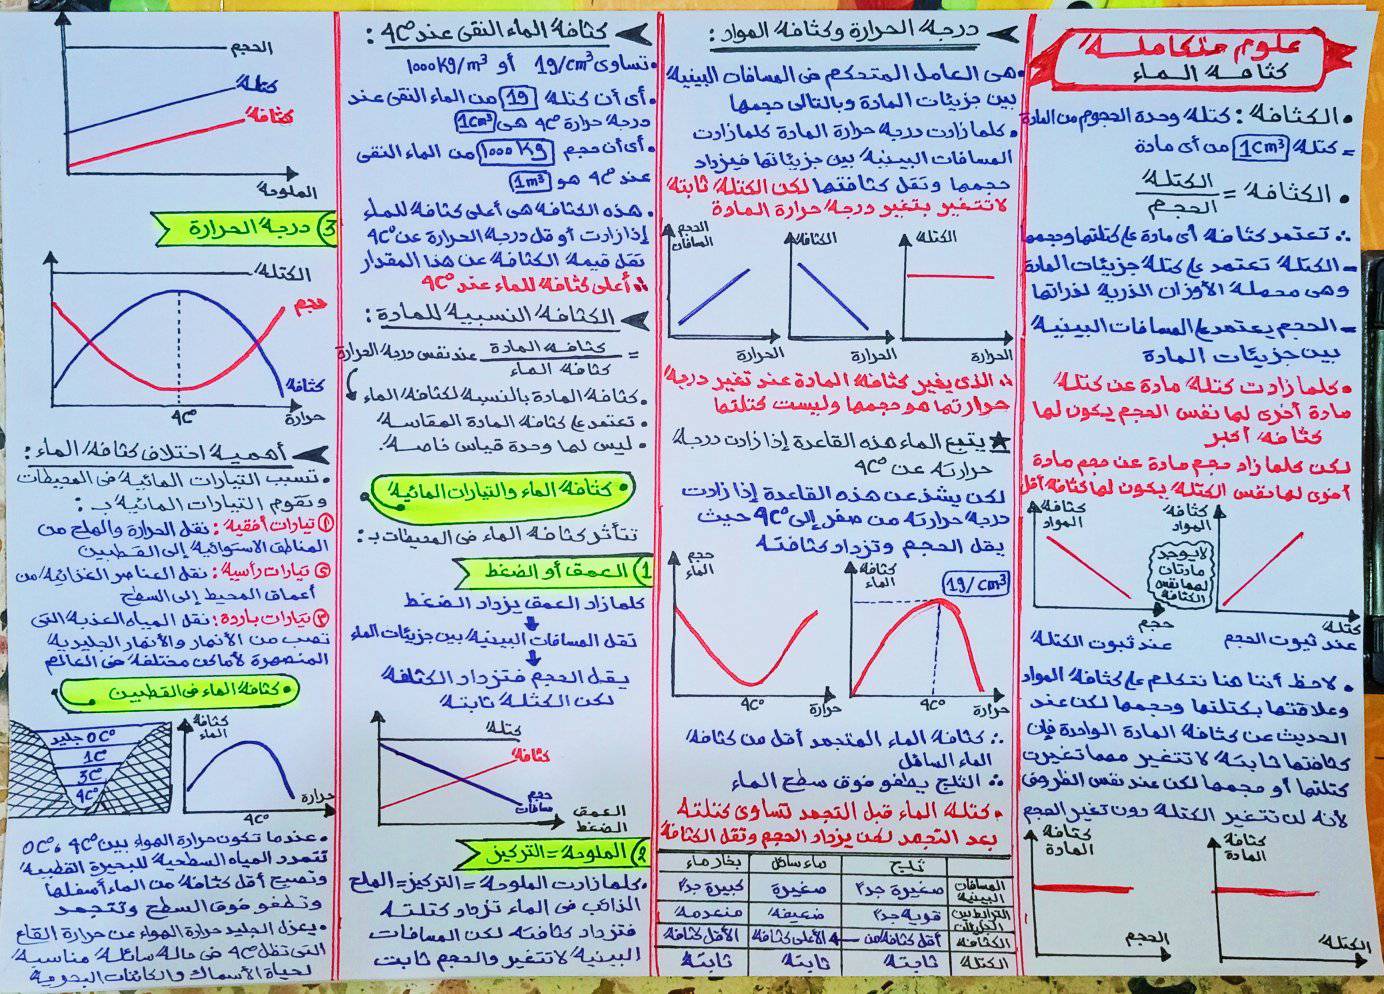 علوم متكاملة
كثافة الماء
• الكثافة: كتلة وحدة الحجوم من المادة
= كتلة 1cm³ من أي مادة
• الكثافة = الكتلة / الحجم
∴ تعتمد كثافة أى مادة على كتلتها وحجمها
- الكتلة تعتمد على كتلة جزيئات المادة
وهى محصلة الأوزان الذرية لذراتها
= الحجم يعتمد على المسافات البينية
بين جزيئات المادة
• كلما زادت كتلة مادة عن كتلة
مادة أخرى لها نفس الحجم يكون لها
كثافة أكبر
لكن كلما زاد حجم مادة عن حجم مادة
أخرى لها نفس الكتلة يكون لها كثافة أقل
كثافة المواد
كتلة
عند ثبوت الحجم
لا يوجد
مادتان
لهما نفس
الكثافة
كثافة المواد
حجم
عند ثبوت الكتلة
• لاحظ أننا هنا نتكلم على كثافة المواد
وعلاقتها بكتلتها وحجمها لكن عند
الحديث عن كثافة المادة الواحدة فإن
كثافتها ثابتة لا تتغير مهما تغيرت
كتلتها أو حجمها لكن عند نفس الظروف
لأنه لن تتغير الكتلة دون تغير الحجم
كثافة المادة
الكتلة
كثافة المادة
الحجم
درجة الحرارة وكثافة المواد:
• هى العامل المتحكم فى المسافات البينية
بين جزيئات المادة وبالتالى حجمها
• كلما زادت درجة حرارة المادة كلما زادت
المسافات البينية بين جزيئاتها فيزداد
حجمها وتقل كثافتها لكن الكتلة ثابتة
لا تتغير بتغير درجة حرارة المادة
الكتلة
الحرارة
الكثافة
الحرارة
الحجم
المسافات
الحرارة
∴ الذى يغير كثافة المادة عند تغير درجة
حرارتها هو حجمها وليست كتلتها
★ يتبع الماء هذه القاعدة إذا زادت درجة
حرارته عن 4C°
لكن يشذ عن هذه القاعدة إذا زادت
درجة حرارته من صفر إلى 4C° حيث
يقل الحجم وتزداد كثافته
كثافة الماء
1g/cm³
4C°
حرارة
حجم الماء
4C°
حرارة
∴ كثافة الماء المتجمد أقل من كثافة
الماء السائل
∴ الثلج يطفو فوق سطح الماء
• كتلة الماء قبل التجمد تساوى كتلته
بعد التجمد لكن يزداد الحجم وتقل الكثافة
ثلج ماء سائل بخار ماء
المسافات البينية صغيرة جداً صغيرة كبيرة جداً
الترابط بين الجزيئات قوية جداً ضعيفة منعدمة
الكثافة أقل كثافة من الأعلى كثافة الأقل كثافة
الكتلة ثابتة ثابتة ثابتة
كثافة الماء النقى عند 4C°:
• تساوى 1g/cm³ أو 1000Kg/m³
• أى أن كتلة 1g من الماء النقى عند
درجة حرارة 4C° هى 1cm³
• أى أن حجم 1000Kg من الماء النقى
عند 4C° هو 1m³
• هذه الكثافة هى أعلى كثافة للماء
إذا زادت أو قل درجة الحرارة عن 4C°
تقل قيمة الكثافة عن هذا المقدار
∴ أعلى كثافة للماء عند 4C°
الكثافة النسبية للمادة:
= كثافة المادة / كثافة الماء عند نفس درجة الحرارة
• كثافة المادة بالنسبة لكثافة الماء
• تعتمد على كثافة المادة المقاسة
• ليس لها وحدة قياس خاصة
• كثافة الماء والتيارات المائية
تتأثر كثافة الماء فى المحيطات بـ:
1) العمق أو الضغط
كلما زاد العمق يزداد الضغط
تقل المسافات البينية بين جزيئات الماء
يقل الحجم فتزداد الكثافة
لكن الكتلة ثابتة
كتلة
كثافة
حجم
مسافات
العمق
الضغط
2) الملوحة = التركيز
• كلما زادت الملوحة = التركيز = الملح
الذائب فى الماء تزداد كتلته
فتزداد كثافته لكن المسافات
البينية لا تتغير والحجم ثابت
الحجم
كتلة
كثافة
الملوحة
3) درجة الحرارة
الكتلة
حجم
كثافة
4C°
حرارة
أهمية اختلاف كثافة الماء:
• تسبب التيارات المائية فى المحيطات
وتقوم التيارات المائية بـ:
① تيارات أفقية: نقل الحرارة والملح من
المناطق الاستوائية إلى القطبين
② تيارات رأسية: نقل العناصر الغذائية من
أعماق المحيط إلى السطح
③ تيارات باردة: نقل المياه العذبة التى
تصب من الأنهار والأنهار الجليدية
المنصهرة لأماكن مختلفة فى العالم
• كثافة الماء فى القطبين
كثافة الماء
4C°
حرارة
0C° جليد
1C°
3C°
4C°
• عندما تكون حرارة الهواء بين 4C°، 0C°
تتمدد المياه السطحية للبحيرة القطبية
وتصبح أقل كثافة من الماء أسفلها
وتطفو فوق السطح وتتجمد
• يعزل الجليد حرارة الهواء عن حرارة القاع
التى تظل 4C° فى حالة سائلة مناسبة
لحياة الأسماك والكائنات البحرية